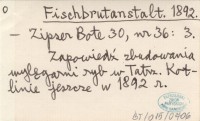 Fischbrutanstalt. 1892.
– Zipser Bote 30, nr 36: 3.
Zapowiedź zbudowania
wylęgarni ryb w Tatrz. Kot-
linie jeszcze w 1892 r.
BT/015/0406